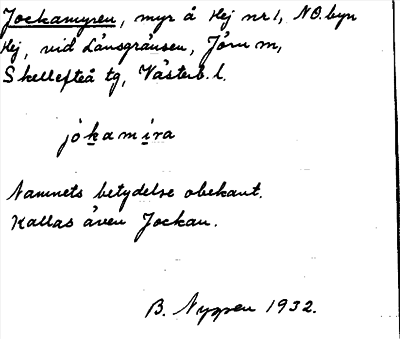 Jockamyren, myr å Hej nr 1, NO. byn
Hej, vid Länsgränsen, Jörn m,
Skellefteå tg, Västerb. l.
jókamíra
Namnets betydelse obekant.
Kallas även Jockan.
B. Nygren 1932.